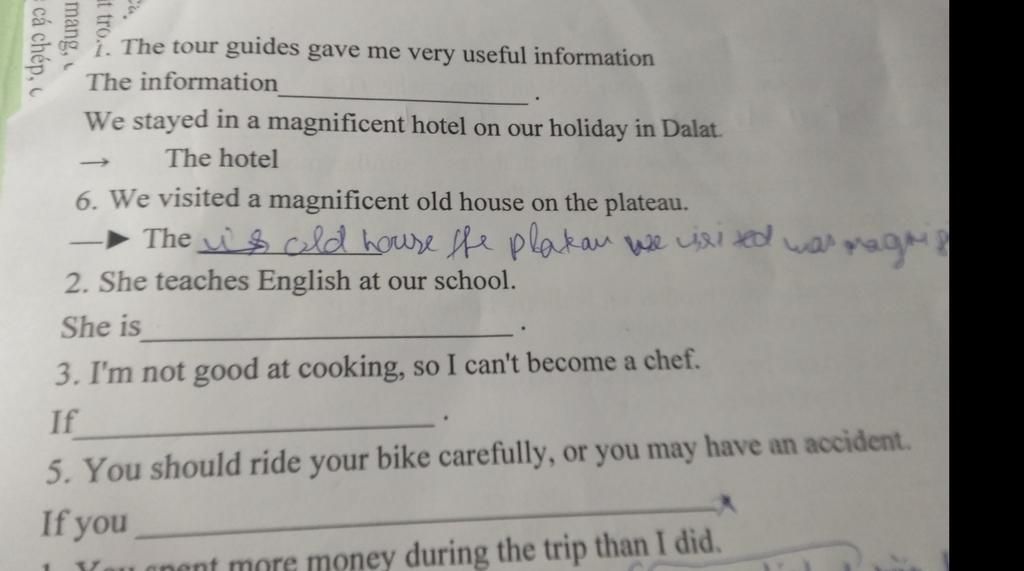 cá chép, c
mang,
t tro
1. The tour guides gave me very useful information
The information____________________.
We stayed in a magnificent hotel on our holiday in Dalat.
→ The hotel
6. We visited a magnificent old house on the plateau.
→ The old house the plateau we visited was magni
2. She teaches English at our school.
She is______________________________.
3. I'm not good at cooking, so I can't become a chef.
If____________________________.
5. You should ride your bike carefully, or you may have an accident.
If you ____________________________________________
spent more money during the trip than I did.